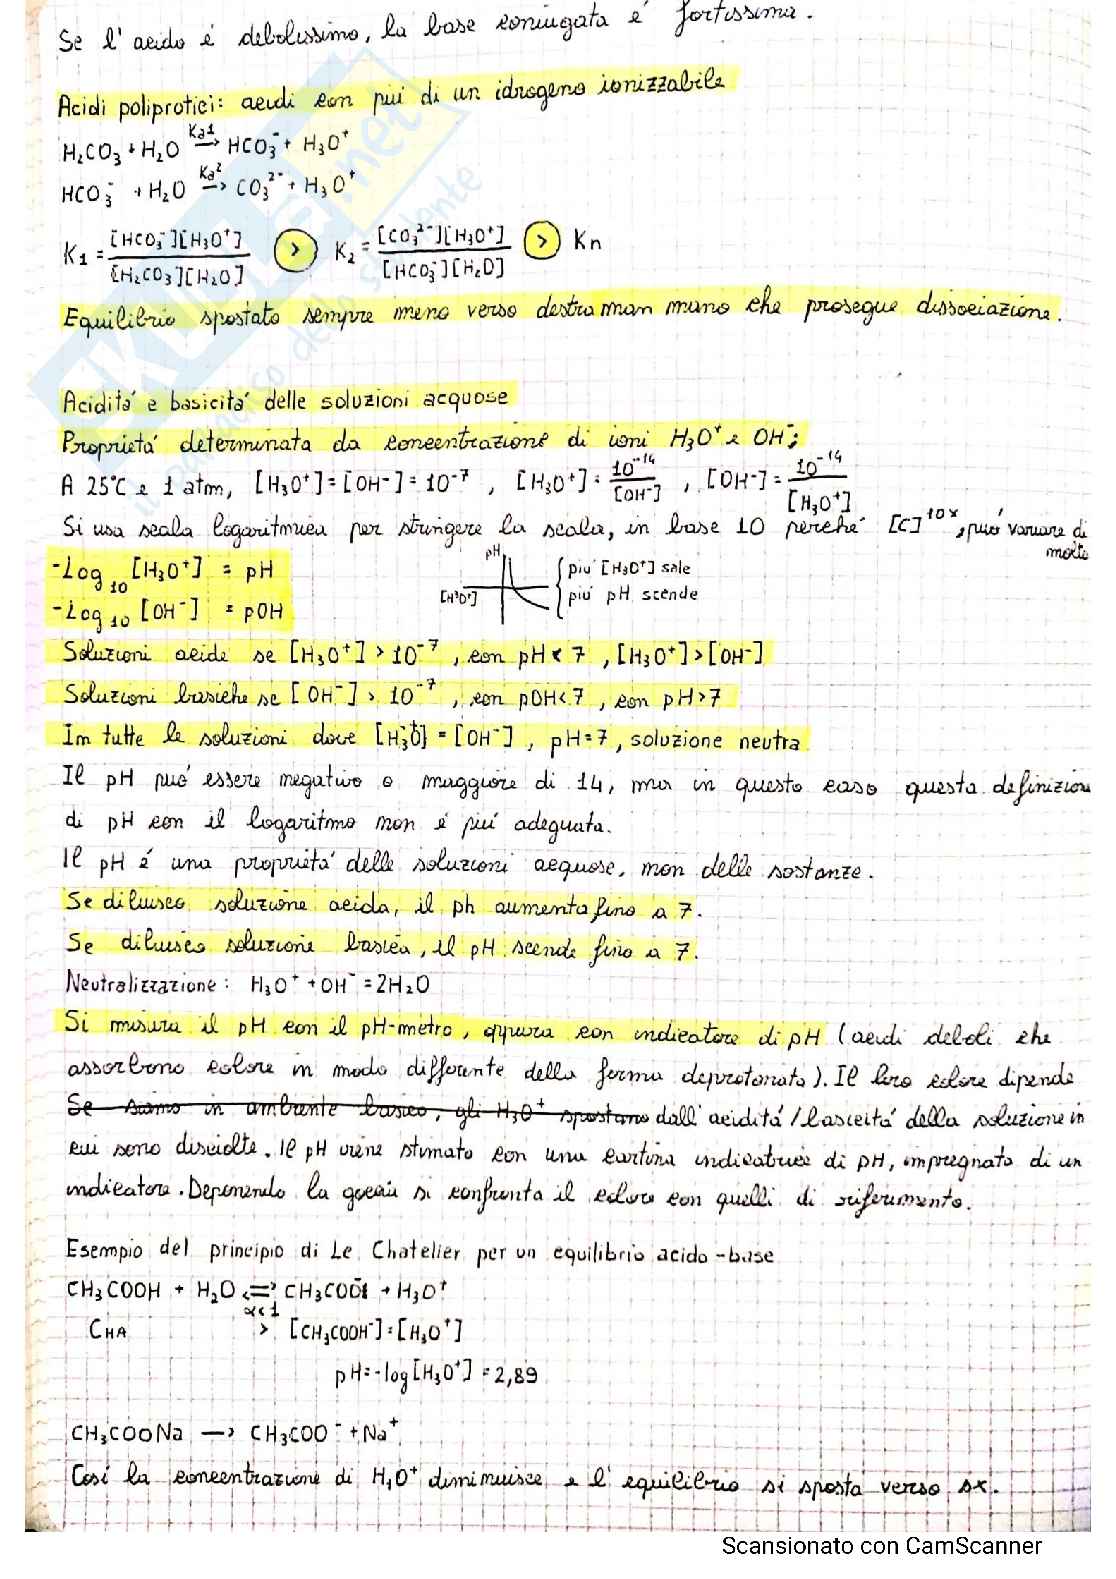 Se l'acido è debolissimo, la base coniugata è fortissima.
Acidi poliprotici: acidi con più di un idrogeno ionizzabile
H₂CO₃ + H₂O →(Ka1) HCO₃⁻ + H₃O⁺
HCO₃⁻ + H₂O →(Ka²) CO₃²⁻ + H₃O⁺
K₁ = [HCO₃⁻][H₃O⁺] / [H₂CO₃][H₂O] > K₂ = [CO₃²⁻][H₃O⁺] / [HCO₃⁻][H₂O] > Kn
Equilibrio spostato sempre meno verso destra man mano che prosegue dissociazione.
Acidità e basicità delle soluzioni acquose
Proprietà determinata da concentrazione di ioni H₃O⁺ e OH⁻;
A 25°C e 1 atm, [H₃O⁺]=[OH⁻]=10⁻⁷, [H₃O⁺]= 10⁻¹⁴/[OH⁻], [OH⁻]= 10⁻¹⁴/[H₃O⁺]
Si usa scala logaritmica per stringere la scala, in base 10 perché [C]¹⁰ˣ, può variare di molto
-Log₁₀ [H₃O⁺] = pH
-Log₁₀ [OH⁻] = pOH
pH
[H³O⁺]
più [H₃O⁺] sale
più pH scende
Soluzioni acide se [H₃O⁺] > 10⁻⁷, con pH < 7, [H₃O⁺]>[OH⁻]
Soluzioni basiche se [OH⁻] > 10⁻⁷, con pOH<7, con pH>7
In tutte le soluzioni dove [H₃O⁺] = [OH⁻], pH=7, soluzione neutra
Il pH può essere negativo o maggiore di 14, ma in questo caso questa definizione
di pH con il logaritmo non è più adeguata.
Il pH è una proprietà delle soluzioni acquose, non delle sostanze.
Se diluisco soluzione acida, il ph aumenta fino a 7.
Se diluisco soluzione basica, il pH scende fino a 7.
Neutralizzazione: H₃O⁺ + OH⁻ = 2H₂O
Si misura il pH con il pH-metro, oppure con indicatore di pH (acidi deboli che
assorbono colore in modo differente della forma deprotonata). Il loro colore dipende
Se siamo in ambiente basico, gli H₃O⁺ spostano dall'acidità/basicità della soluzione in
cui sono disciolte. Il pH viene stimato con una cartina indicatrice di pH, impregnata di un
indicatore. Deponendo la goccia si confronta il colore con quelli di riferimento.
Esempio del principio di Le Chatelier per un equilibrio acido-base
CH₃COOH + H₂O ⇌ CH₃COO⁻ + H₃O⁺
CHA α<1 > [CH₃COOH⁻]=[H₃O⁺]
pH=-log[H₃O⁺] = 2,89
CH₃COONa → CH₃COO⁻ + Na⁺
Così la concentrazione di H₃O⁺ diminuisce e l'equilibrio si sposta verso sx.
Scansionato con CamScanner